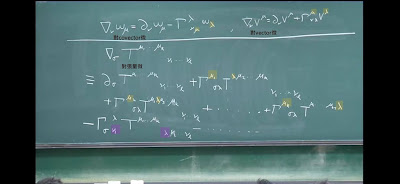 ∇_ν ω_μ = ∂_ν ω_μ − Γ^λ_{νμ} ω_λ , ∇_ν V^μ = ∂_ν V^μ + Γ^μ_{νλ} V^λ
對covector做 對vector做
∇_σ T^{μ₁ … μ_k}_{ν₁ … ν_l}
對張量做
≡ ∂_σ T^{μ₁ … μ_k}_{ν₁ … ν_l} + Γ^{μ₁}_{σλ} T^{λ μ₂ … μ_k}_{ν₁ … ν_l}
+ Γ^{μ₂}_{σλ} T^{μ₁ λ μ₃ … μ_k}_{ν₁ … ν_l} + …… + Γ^{μ_k}_{σλ} T^{μ₁ … λ}
− Γ^λ_{σν₁} T^{μ₁ … μ_k}_{λ ν₂ … ν_l} − ………